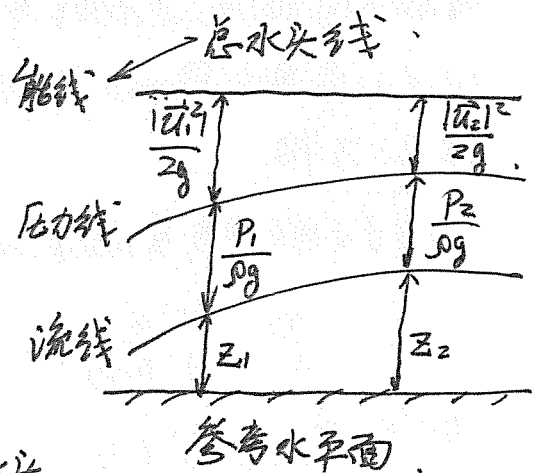 总水头线
能线
|u⃗₁|²/2g
|u⃗₂|²/2g
压力线
P₁/ρg
P₂/ρg
流线
Z₁
Z₂
参考水平面